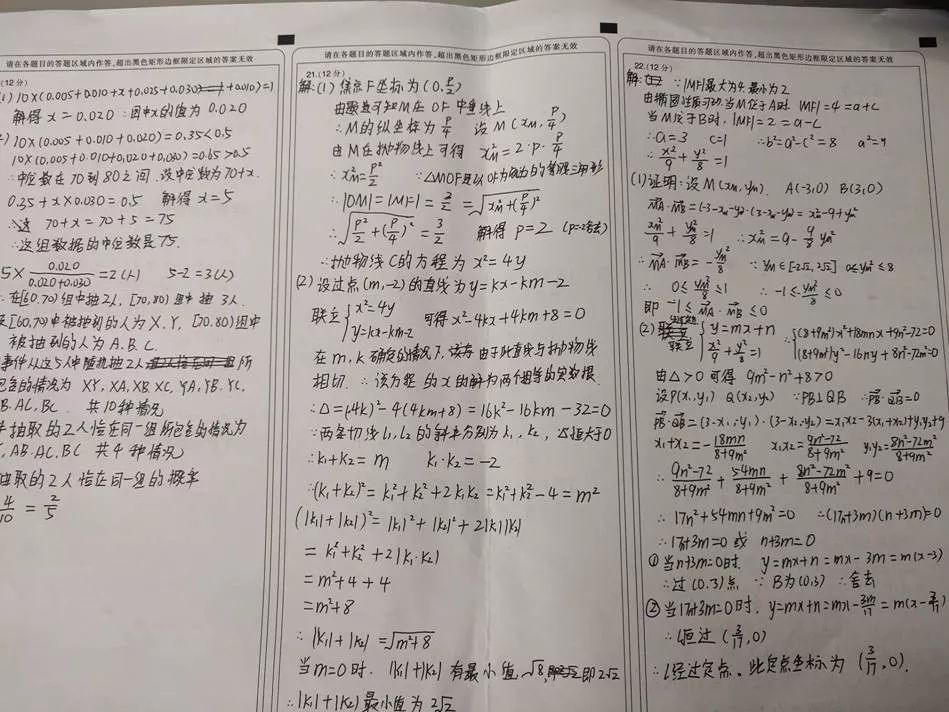 请在各题目的答题区域内作答,超出黑色矩形边框限定区域的答案无效
(12分)
10×(0.005+0.010+x+0.025+0.030+0.010)=1
解得 x=0.020 ∴图中x的值为 0.020
10×(0.005+0.010+0.020)=0.35<0.5
10×(0.005+0.010+0.020+0.030)=0.65>0.5
∴中位数在70到80之间 设中位数为70+x.
0.35+x×0.030=0.5 解得 x=5
70+x=70+5=75
∴这组数据的中位数是75.
5×0.020/(0.020+0.030)=2(人) 5-2=3(人)
∴在[60.70)组中抽2人, [70,80)组中抽 3人.
[60,70)中被抽到的人为 X.Y, [70.80)组中
被抽到的人为 A.B.C
事件从这5人中随机抽2人 所
包含的情况为 XY, XA, XB, XC, YA, YB, YC,
B.AC, BC. 共10种情况
抽取的2人恰在同一组所包含的情况为
, AB. AC, BC 共4种情况
抽取的2人恰在同一组的概率
4/10 = 2/5
请在各题目的答题区域内作答,超出黑色矩形边框限定区域的答案无效
21.(12分)
解:(1) 焦点F坐标为(0, P/2)
由题意可知M在 OF 中垂线上
∴M的纵坐标为 P/4 设 M(xM, P/4)
由M在抛物线上可得 xM²=2·P·P/4
∴xM²=P²/2 ∵△MOF是以OF为底边的等腰三角形
∴|OM|=|MF|=3/2=√(xM²+(P/4)²)
∴√(P²/2+(P/4)²)=3/2 解得 P=2 (P=-2舍去)
∴抛物线C的方程为 x²=4y
(2) 设过点(m,-2)的直线为y=kx-km-2
联立{x²=4y
y=kx-km-2 可得 x²-4kx+4km+8=0
在 m, k 确定的情况下, 由于此直线与抛物线
相切. ∴该方程的x的解为两个相等的实数根
∴△=(-4k)²-4(4km+8)=16k²-16km-32=0
∵两条切线l₁, l₂的斜率分别为k₁, k₂, △恒大于0
∴k₁+k₂=m k₁·k₂=-2
∴(k₁+k₂)²=k₁²+k₂²+2k₁k₂=k₁²+k₂²-4=m²
(|k₁|+|k₂|)²=|k₁|²+|k₂|²+2|k₁||k₂|
=k₁²+k₂²+2|k₁·k₂|
=m²+4+4
=m²+8
∴|k₁|+|k₂|=√(m²+8)
当m=0时. |k₁|+|k₂|有最小值 √8, 即2√2
∴|k₁|+|k₂|最小值为2√2
请在各题目的答题区域内作答,超出黑色矩形边框限定区域的答案无效
22.(12分)
解: ∵|MF|最大为4.最小为2
由椭圆性质可知.当M位于A时 |MF|=4=a+c
当M位于B时, |MF|=2=a-c
∴a=3 c=1 ∴b²=a²-c²=8 a²=9
∴x²/9+y²/8=1
(1)证明:设M(xM, yM). A(-3,0) B(3,0)
MA·MB=(-3-xM,-yM)·(3-xM,-yM)=xM²-9+yM²
xM²/9+yM²/8=1 ∴xM²=9-9/8yM²
∴MA·MB=-yM²/8 ∵yM∈[-2√2,2√2] 0≤yM²≤8
∴0≤yM²/8≤1 ∴-1≤-yM²/8≤0
即 -1≤MA·MB≤0
(2) 联立{y=mx+n
x²/9+y²/8=1 ∴{(8+9m²)x²+18mnx+9n²-72=0
(8+9m²)y²-16ny+8n²-72m²=0
由△>0 可得 9m²-n²+8>0
设P(x₁,y₁) Q(x₂,y₂) ∵PB⊥QB ∴PB·QB=0
PB·QB=(3-x₁,-y₁)·(3-x₂,-y₂)=x₁x₂-3(x₁+x₂)+y₁y₂+9
x₁+x₂=-18mn/(8+9m²) x₁x₂=(9n²-72)/(8+9m²) y₁y₂=(8n²-72m²)/(8+9m²)
∴(9n²-72)/(8+9m²)+54mn/(8+9m²)+(8n²-72m²)/(8+9m²)+9=0
∴17n²+54mn+9m²=0 ∴(17n+3m)(n+3m)=0
∴17n+3m=0 或 n+3m=0
①当n+3m=0时. y=mx+n=mx-3m=m(x-3)
∴过(0.3)点 ∵B为(0,3) ∴舍去
②当17n+3m=0时. y=mx+n=mx-3m/17=m(x-3/17)
∴l恒过(3/17,0)
∴l经过定点。此定点坐标为(3/17,0).